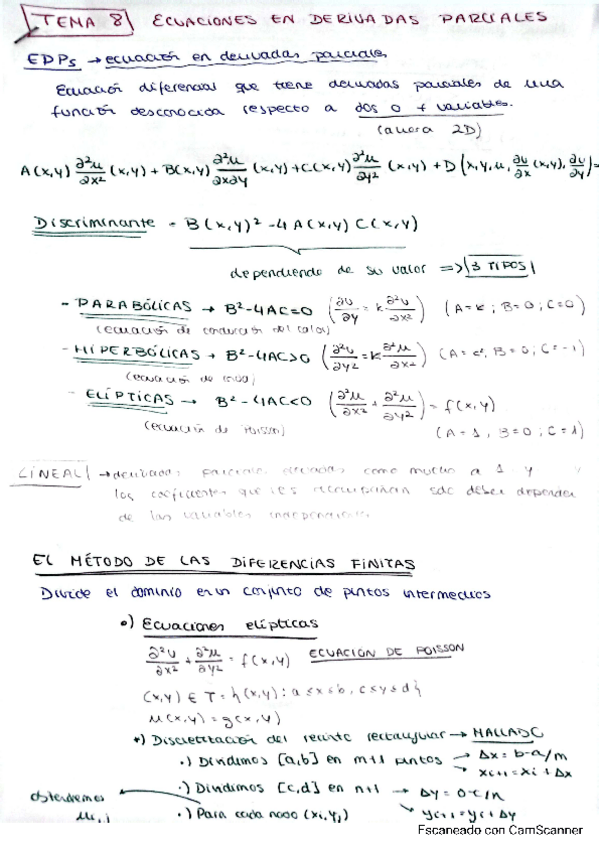 TEMA 8 ECUACIONES EN DERIVADAS PARCIALES
EDPs → ecuación en derivadas parciales
Ecuación diferencial que tiene derivadas parciales de una
función desconocida respecto a dos o + variables.
(ahora 2D)
A(x,y) ∂²u/∂x² (x,y) + B(x,y) ∂²u/∂x∂y (x,y) + C(x,y) ∂²u/∂y² (x,y) + D (x,y,u, ∂u/∂x (x,y), ∂u/∂y) =
Discriminante = B(x,y)² - 4A(x,y) C(x,y)
dependiendo de su valor => 3 TIPOS
- PARABÓLICAS → B²-4AC=0 (∂u/∂y = k ∂²u/∂x²) (A=k; B=0; C=0)
(ecuación de conducción del calor)
- HIPERBÓLICAS → B²-4AC>0 (∂²u/∂y² = k ∂²u/∂x²) (A=c², B=0; C=-1)
(ecuación de onda)
- ELÍPTICAS → B²-4AC<0 (∂²u/∂x² + ∂²u/∂y²) = f(x,y)
(ecuación de Poisson) (A=1, B=0; C=1)
LINEAL → derivadas parciales elevadas como mucho a 1 y
los coeficientes que les acompañan solo deben depender
de las variables independientes
EL MÉTODO DE LAS DIFERENCIAS FINITAS
Divide el dominio en un conjunto de puntos intermedios
•) Ecuaciones elípticas
∂²u/∂x² + ∂²u/∂y² = f(x,y) ECUACION DE POISSON
(x,y) ∈ T = {(x,y): a≤x≤b, c≤y≤d}
u(x,y) = g(x,y)
*) Discretización del recinto rectangular → MALLADO
•) Dividimos [a,b] en m+1 puntos → Δx = b-a/m
→ xi+1 = xi + Δx
•) Dividimos [c,d] en n+1 → Δy = d-c/n
→ yi+1 = yi + Δy
obtendremos ui,j
•) Para cada nodo (xi, yj)
Escaneado con CamScanner